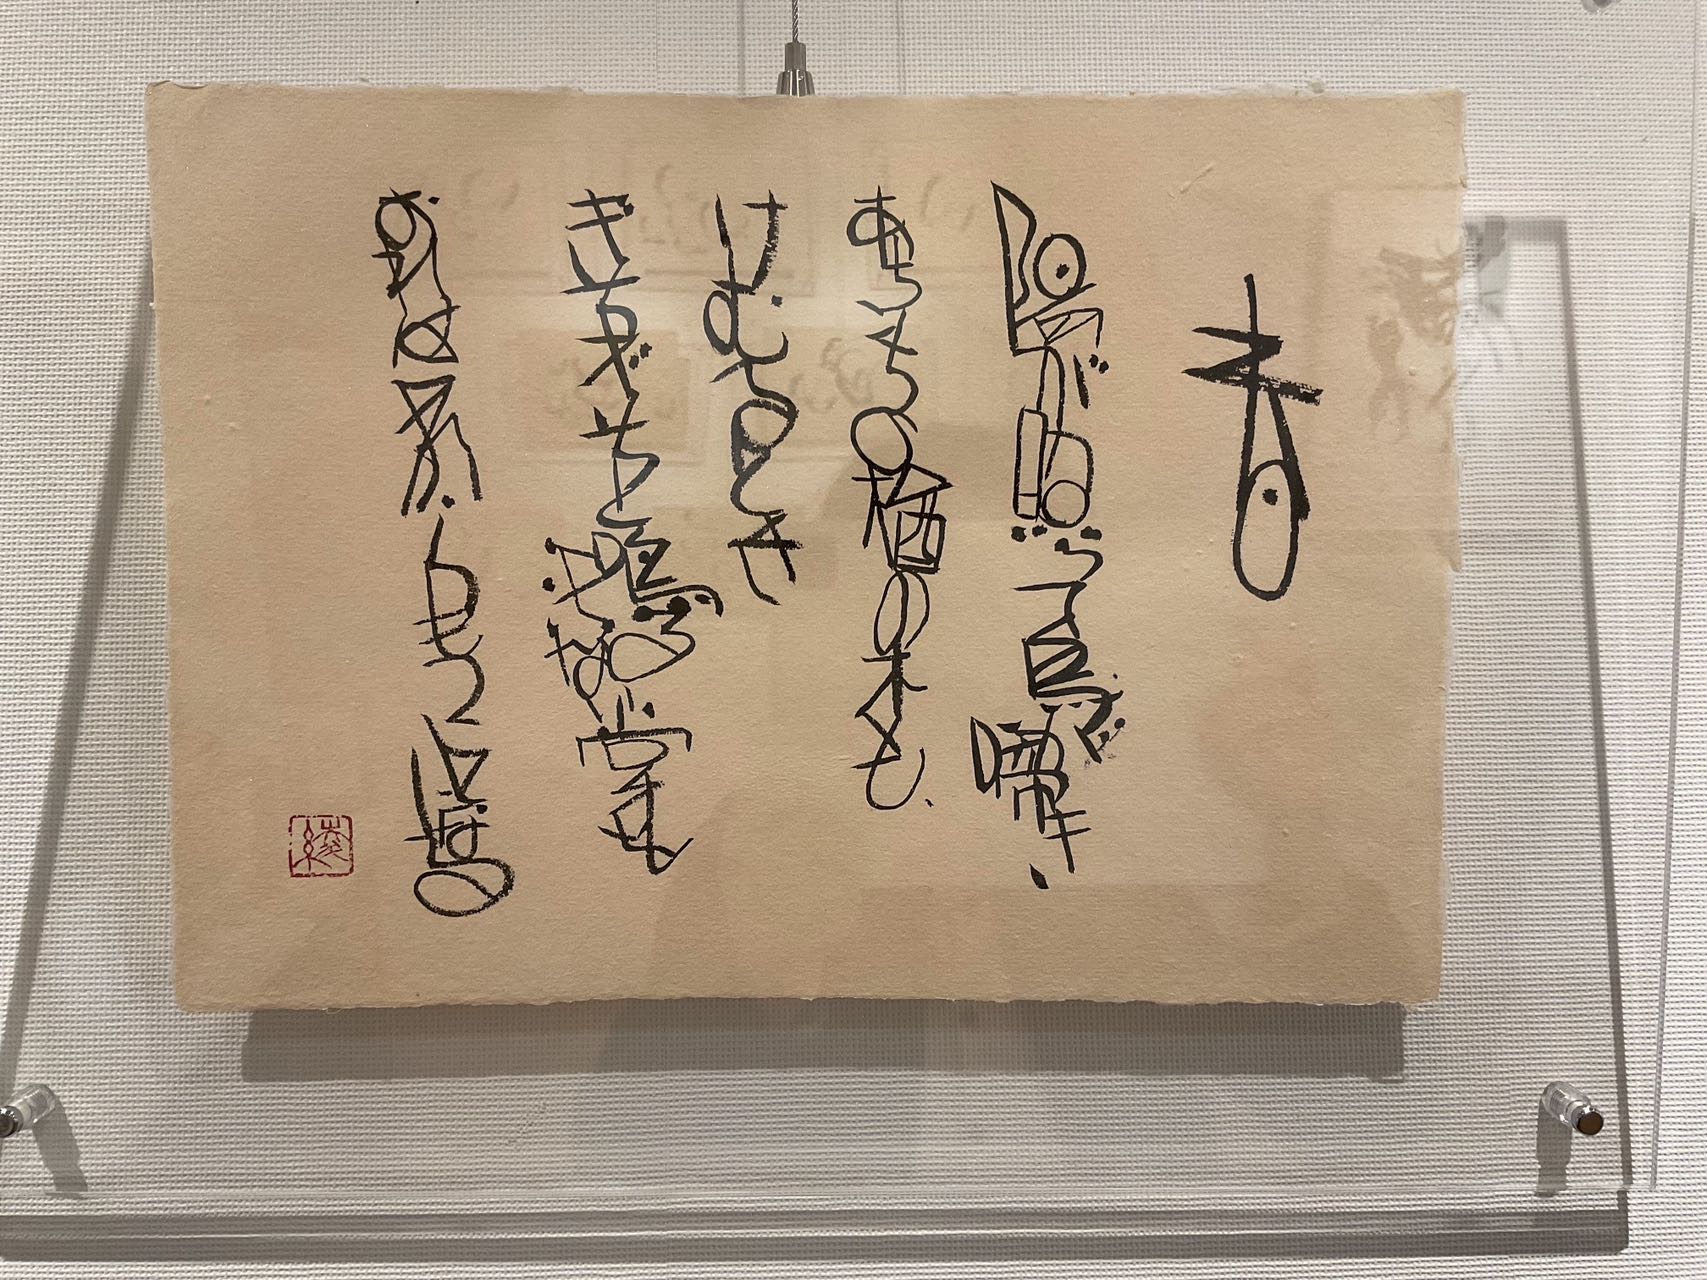 春
陽が照って鳥が啼き、
あちこちの楢の林も、
けむるとき
ぎちぎちと鳴る汚い掌を
おれはこれからもつことになる